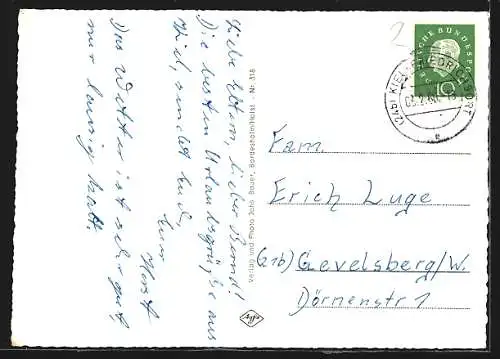 Liebe Eltern, lieber Bernd!
Die besten Urlaubsgrüße aus
Kiel, sendet Euch
Euer
Horst
Das Wetter ist sehr gut,
nur lausig kalt.
Verlag und Photo John Bauer, Bordesholm/Holst. Nr. 318
Agfa
2
DEUTSCHE BUNDESPOST
10
(24b) KIEL-FRIEDRICHSORT
e
Fam.
Erich Luge
(21b) Gevelsberg/W.
Dörnenstr 1